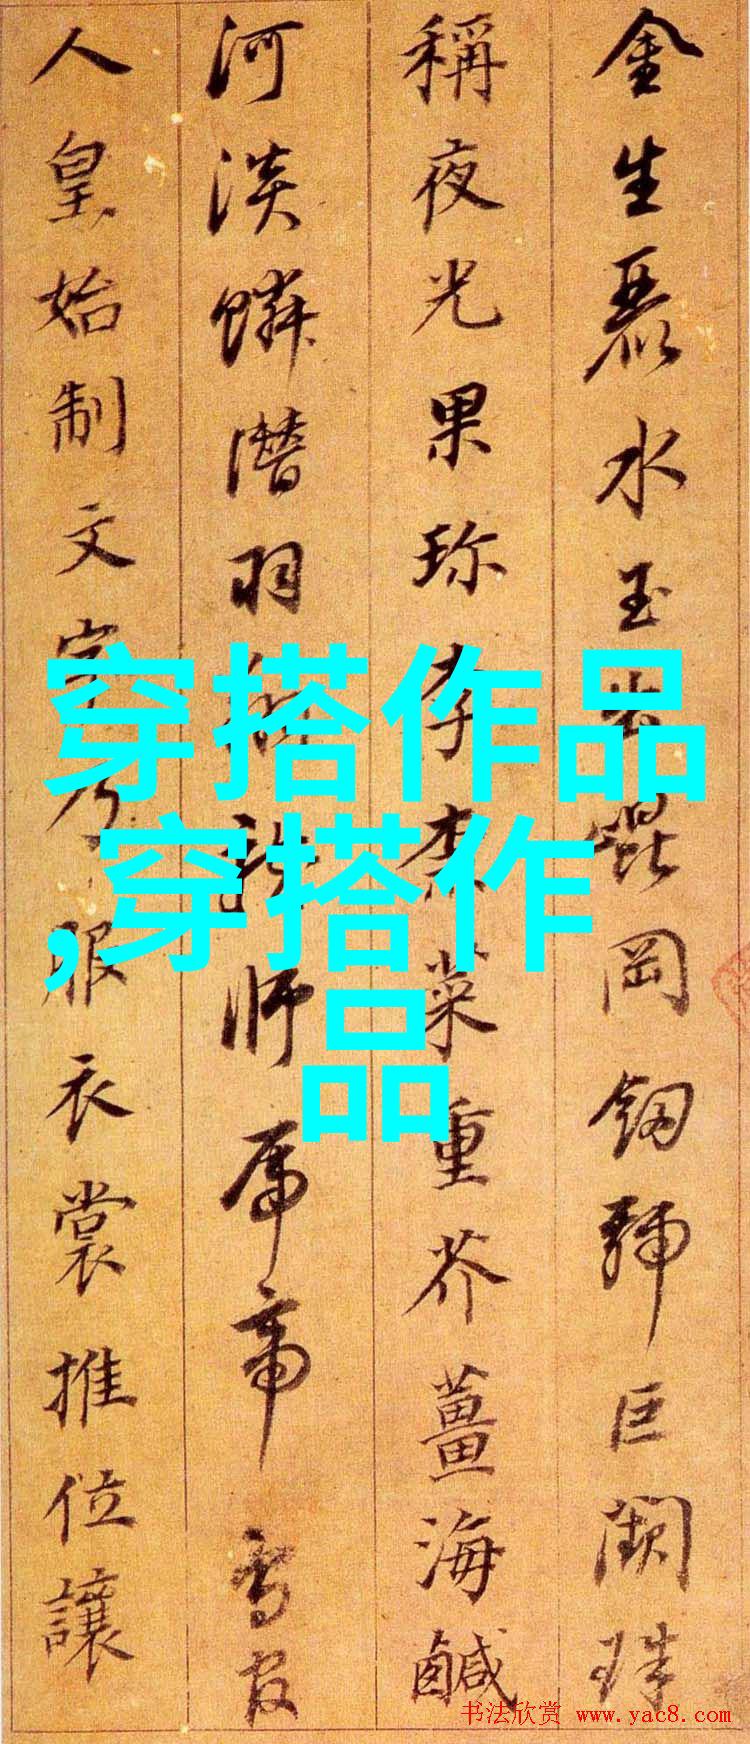 金生麗水玉出崑岡劒號巨闕珠
稱夜光果珍李柰菜重芥薑海鹹
河淡鱗潛羽翔龍師火帝鳥官
人皇始制文字乃服衣裳推位讓
穿搭作品
,穿搭作
品
书法欣赏 www.yac8.com